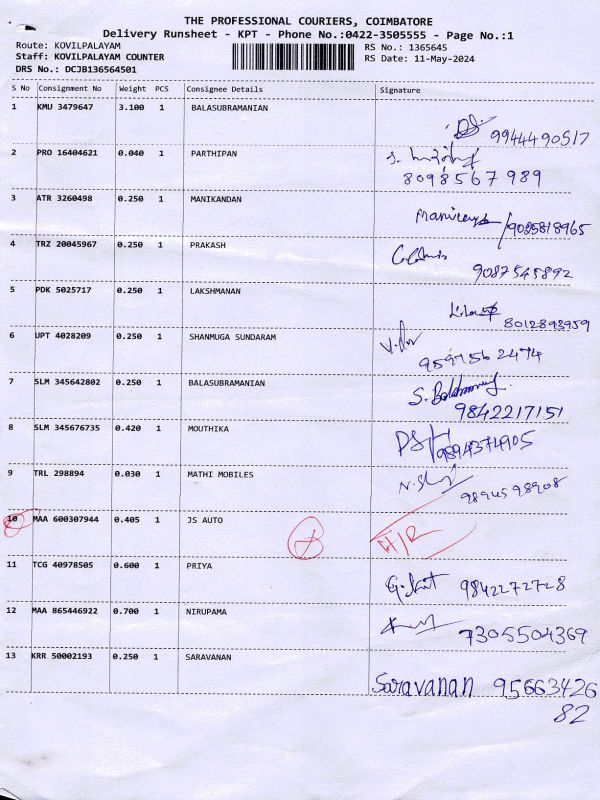 THE PROFESSIONAL COURIERS, COIMBATORE
Delivery Runsheet - KPT - Phone No.:0422-3505555 - Page No.:1
Route: KOVILPALAYAM RS No.: 1365645
Staff: KOVILPALAYAM COUNTER RS Date: 11-May-2024
DRS No.: DCJB136564501
S No Consignment No Weight PCS Consignee Details Signature
1 KMU 3479647 3.100 1 BALASUBRAMANIAN
9944490517
2 PRO 16404621 0.040 1 PARTHIPAN
8098567989
3 ATR 3260498 0.250 1 MANIKANDAN
/9025818965
4 TRZ 20045967 0.250 1 PRAKASH
9087545892
5 PDK 5025717 0.250 1 LAKSHMANAN
8012893959
6 UPT 4028209 0.250 1 SHANMUGA SUNDARAM
9597562474
7 SLM 345642802 0.250 1 BALASUBRAMANIAN
9842217151
8 SLM 345676735 0.420 1 MOUTHIKA
9894374905
9 TRL 298894 0.030 1 MATHI MOBILES
9894598908
10 MAA 600307944 0.405 1 JS AUTO
11 TCG 40978505 0.600 1 PRIYA
9842272728
12 MAA 865446922 0.700 1 NIRUPAMA
7305504369
13 KRR 50002193 0.250 1 SARAVANAN
Saravanan 95663426
82